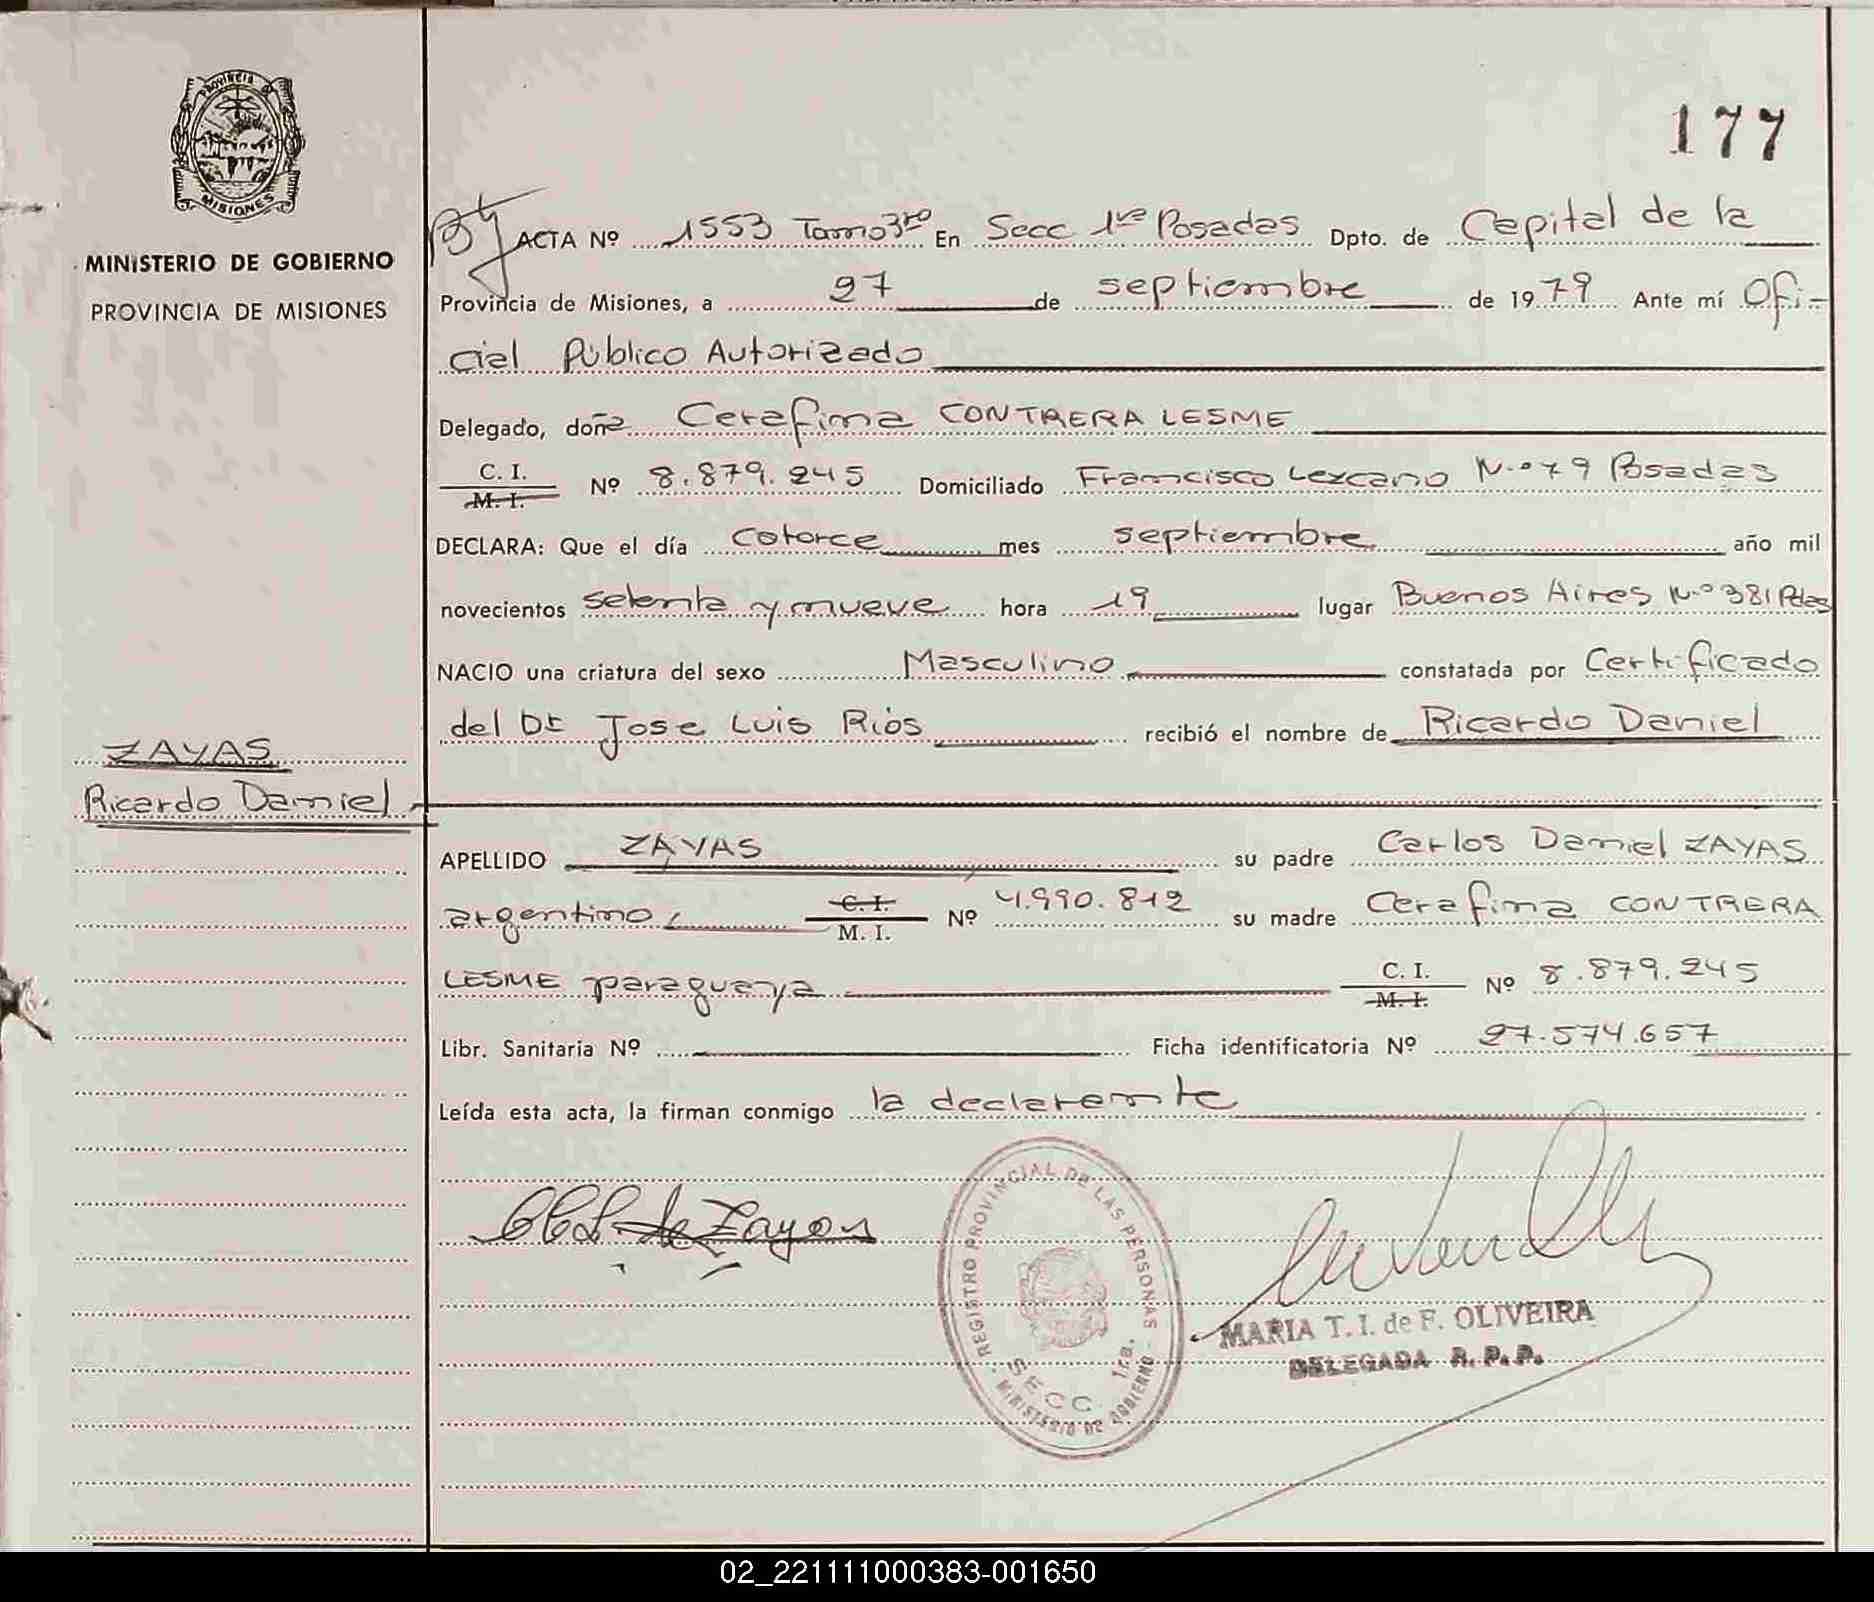 177
PROVINCIA
MISIONES
MINISTERIO DE GOBIERNO
PROVINCIA DE MISIONES
ACTA Nº 1553 Tomo 3ro En Secc 1ra Posadas Dpto. de Capital de la
Provincia de Misiones, a 27 de septiembre de 1979 Ante mí Ofi-
cial Público Autorizado
Delegado, doña Cerafina CONTRERA LESME
C. I. M. I. Nº 8.879.245 Domiciliado Francisco Lezcano N.º 79 Posadas
DECLARA: Que el día catorce mes septiembre año mil
novecientos setenta y nueve hora 19 lugar Buenos Aires N.º 381 Pdas
NACIO una criatura del sexo Masculino constatada por Certificado
del Dr Jose Luis Riós recibió el nombre de Ricardo Daniel
ZAYAS
Ricardo Daniel
APELLIDO ZAYAS su padre Carlos Daniel ZAYAS
argentino, C. I. M. I. Nº 4.990.812 su madre Cerafina CONTRERA
LESME paraguaya C. I. M. I. Nº 8.879.245
Libr. Sanitaria Nº Ficha identificatoria Nº 27.574.657
Leída esta acta, la firman conmigo la declarante
CCL de Zayas
REGISTRO PROVINCIAL DE LAS PERSONAS
SECC. 1ra.
MINISTERIO DE GOBIERNO
MARIA T. I. de F. OLIVEIRA
DELEGADA R. P. P.
02_221111000383-001650